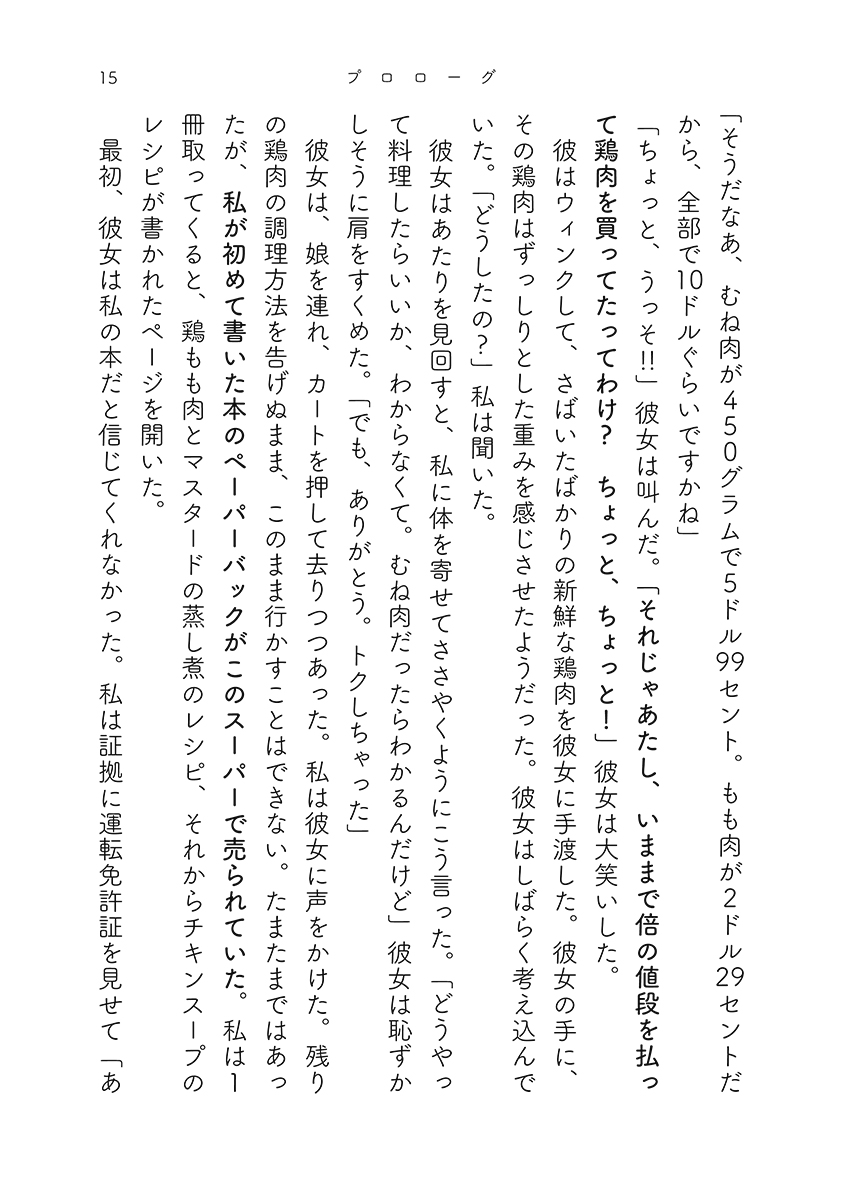 15
プロローグ
「そうだなあ、むね肉が450グラムで5ドル99セント。もも肉が2ドル29セントだ
から、全部で10ドルぐらいですかね」
「ちょっと、うっそ!!」彼女は叫んだ。「それじゃあたし、いままで倍の値段を払っ
て鶏肉を買ってたってわけ?　ちょっと、ちょっと!」彼女は大笑いした。
彼はウィンクして、さばいたばかりの新鮮な鶏肉を彼女に手渡した。彼女の手に、
その鶏肉はずっしりとした重みを感じさせたようだった。彼女はしばらく考え込んで
いた。「どうしたの?」私は聞いた。
彼女はあたりを見回すと、私に体を寄せてささやくようにこう言った。「どうやっ
て料理したらいいか、わからなくて。むね肉だったらわかるんだけど」彼女は恥ずか
しそうに肩をすくめた。「でも、ありがとう。トクしちゃった」
彼女は、娘を連れ、カートを押して去りつつあった。私は彼女に声をかけた。残り
の鶏肉の調理方法を告げぬまま、このまま行かすことはできない。たまたまではあっ
たが、私が初めて書いた本のペーパーバックがこのスーパーで売られていた。私は1
冊取ってくると、鶏もも肉とマスタードの蒸し煮のレシピ、それからチキンスープの
レシピが書かれたページを開いた。
最初、彼女は私の本だと信じてくれなかった。私は証拠に運転免許証を見せて「あ